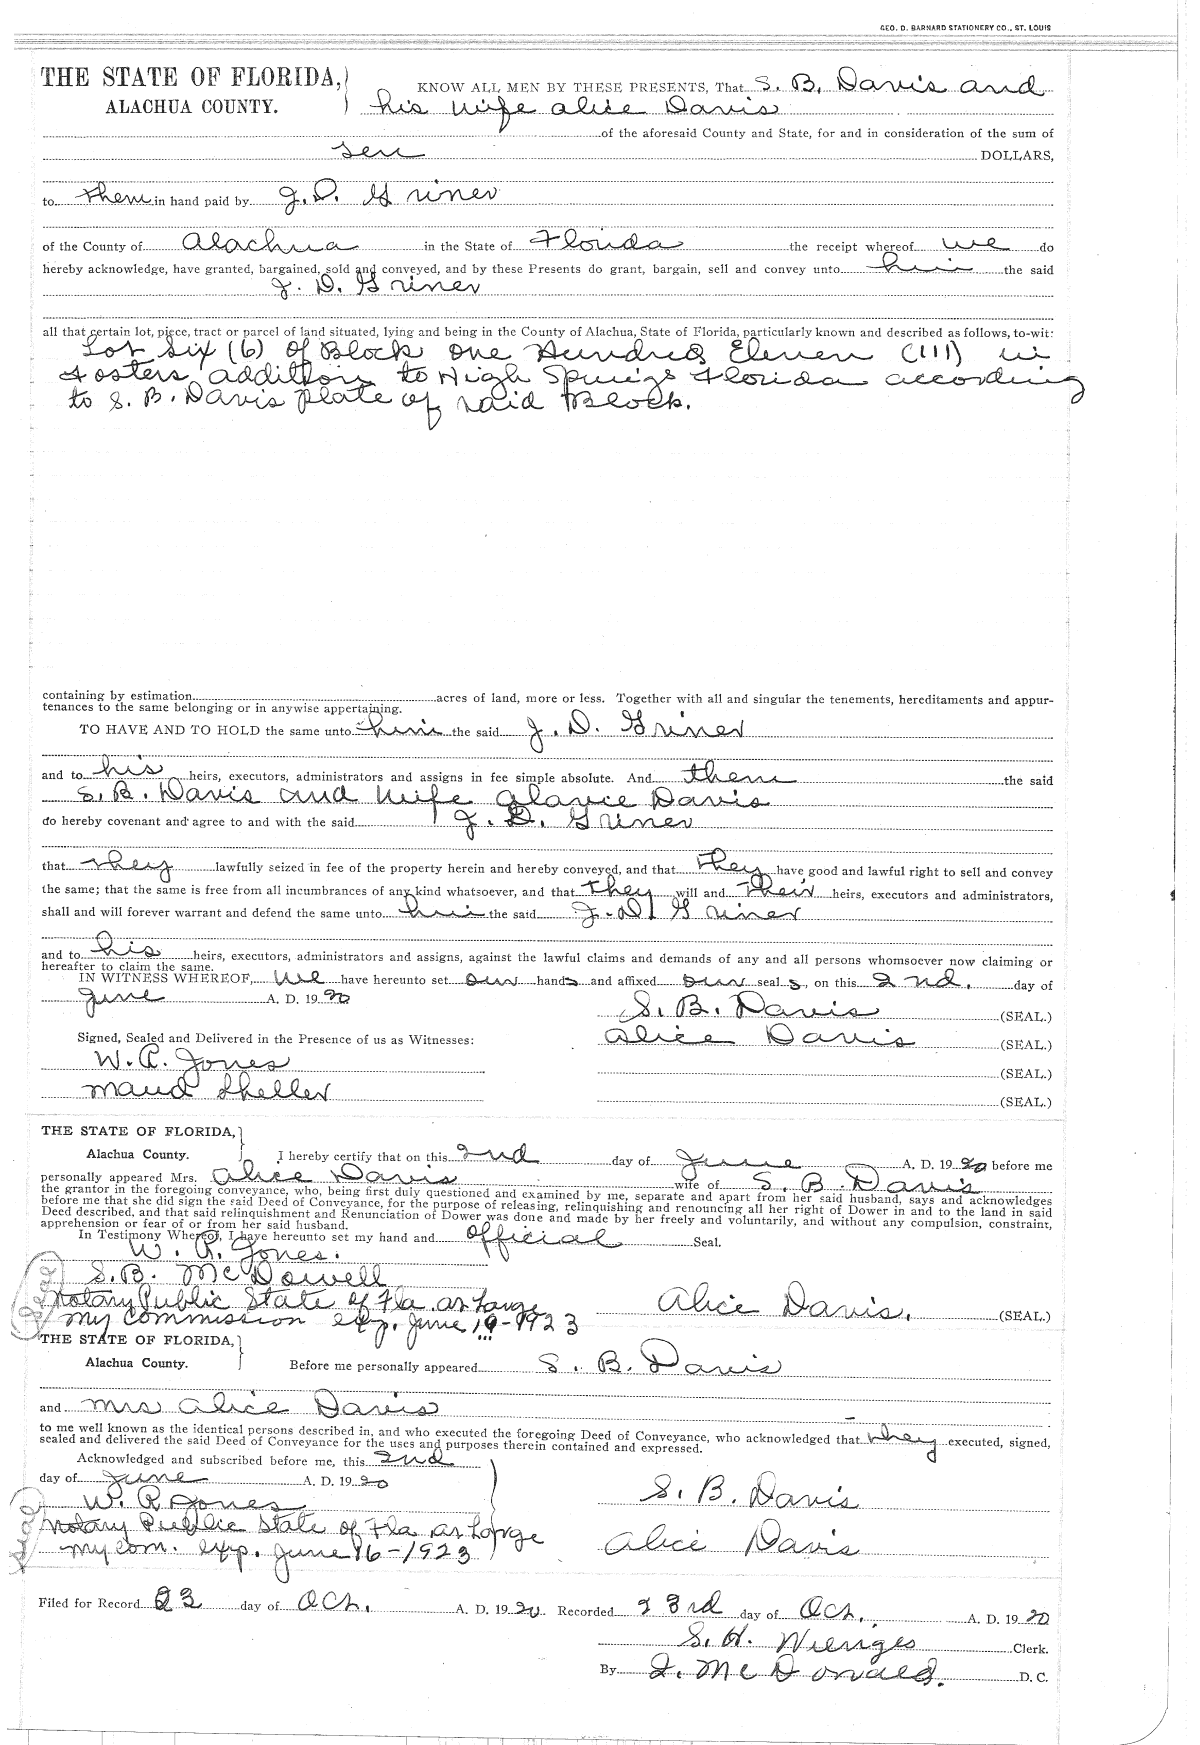 GEO. D. BARNARD STATIONERY CO., ST. LOUIS
THE STATE OF FLORIDA,
ALACHUA COUNTY.
KNOW ALL MEN BY THESE PRESENTS, That S. B. Davis and
his wife alice Davis
of the aforesaid County and State, for and in consideration of the sum of
Ten DOLLARS,
to them in hand paid by J. D. Griner
of the County of Alachua in the State of Florida the receipt whereof we do
hereby acknowledge, have granted, bargained, sold and conveyed, and by these Presents do grant, bargain, sell and convey unto him the said
J. D. Griner
all that certain lot, piece, tract or parcel of land situated, lying and being in the County of Alachua, State of Florida, particularly known and described as follows, to-wit:
Lot Six (6) of Block One Hundred Eleven (111) in
Fosters addition to High Springs Florida according
to S. B. Davis plate of said Block.
containing by estimation acres of land, more or less. Together with all and singular the tenements, hereditaments and appur-
tenances to the same belonging or in anywise appertaining.
TO HAVE AND TO HOLD the same unto him the said J. D. Griner
and to his heirs, executors, administrators and assigns in fee simple absolute. And them the said
S. B. Davis and wife Davis
do hereby covenant and agree to and with the said J. D. Griner
that they lawfully seized in fee of the property herein and hereby conveyed, and that they have good and lawful right to sell and convey
the same; that the same is free from all incumbrances of any kind whatsoever, and that they will and their heirs, executors and administrators,
shall and will forever warrant and defend the same unto him the said J. D. Griner
and to his heirs, executors, administrators and assigns, against the lawful claims and demands of any and all persons whomsoever now claiming or
hereafter to claim the same.
IN WITNESS WHEREOF, we have hereunto set our hands and affixed our seal s, on this 2nd. day of
June A. D. 1920
S. B. Davis (SEAL.)
Signed, Sealed and Delivered in the Presence of us as Witnesses:
Alice Davis (SEAL.)
W. R. Jones (SEAL.)
Maud Sheller (SEAL.)
THE STATE OF FLORIDA,
Alachua County.
I hereby certify that on this 2nd day of June A. D. 1920 before me
personally appeared Mrs. Alice Davis wife of S. B Davis
the grantor in the foregoing conveyance, who, being first duly questioned and examined by me, separate and apart from her said husband, says and acknowledges
before me that she did sign the said Deed of Conveyance, for the purpose of releasing, relinquishing and renouncing all her right of Dower in and to the land in said
Deed described, and that said relinquishment and Renunciation of Dower was done and made by her freely and voluntarily, and without any compulsion, constraint,
apprehension or fear of or from her said husband.
In Testimony Whereof, I have hereunto set my hand and official Seal.
W. R. Jones.
S. B. McDowell
Notary Public State of Fla at Large
Alice Davis. (SEAL.)
My Commission exp. June -1923
THE STATE OF FLORIDA,
Alachua County.
Before me personally appeared S. B. Davis
and Mrs Alice Davis
to me well known as the identical persons described in, and who executed the foregoing Deed of Conveyance, who acknowledged that they executed, signed,
sealed and delivered the said Deed of Conveyance for the uses and purposes therein contained and expressed.
Acknowledged and subscribed before me, this 2nd
day of June A. D. 1920
W. R Jones
S. B. Davis
Notary Public State of Fla at Large
Alice Davis
My com. exp. June 16-1923
Filed for Record 23 day of Oct. A. D. 1920 Recorded 23rd day of Oct. A. D. 1920
S. H. Wienges Clerk.
By McDonald. D. C.